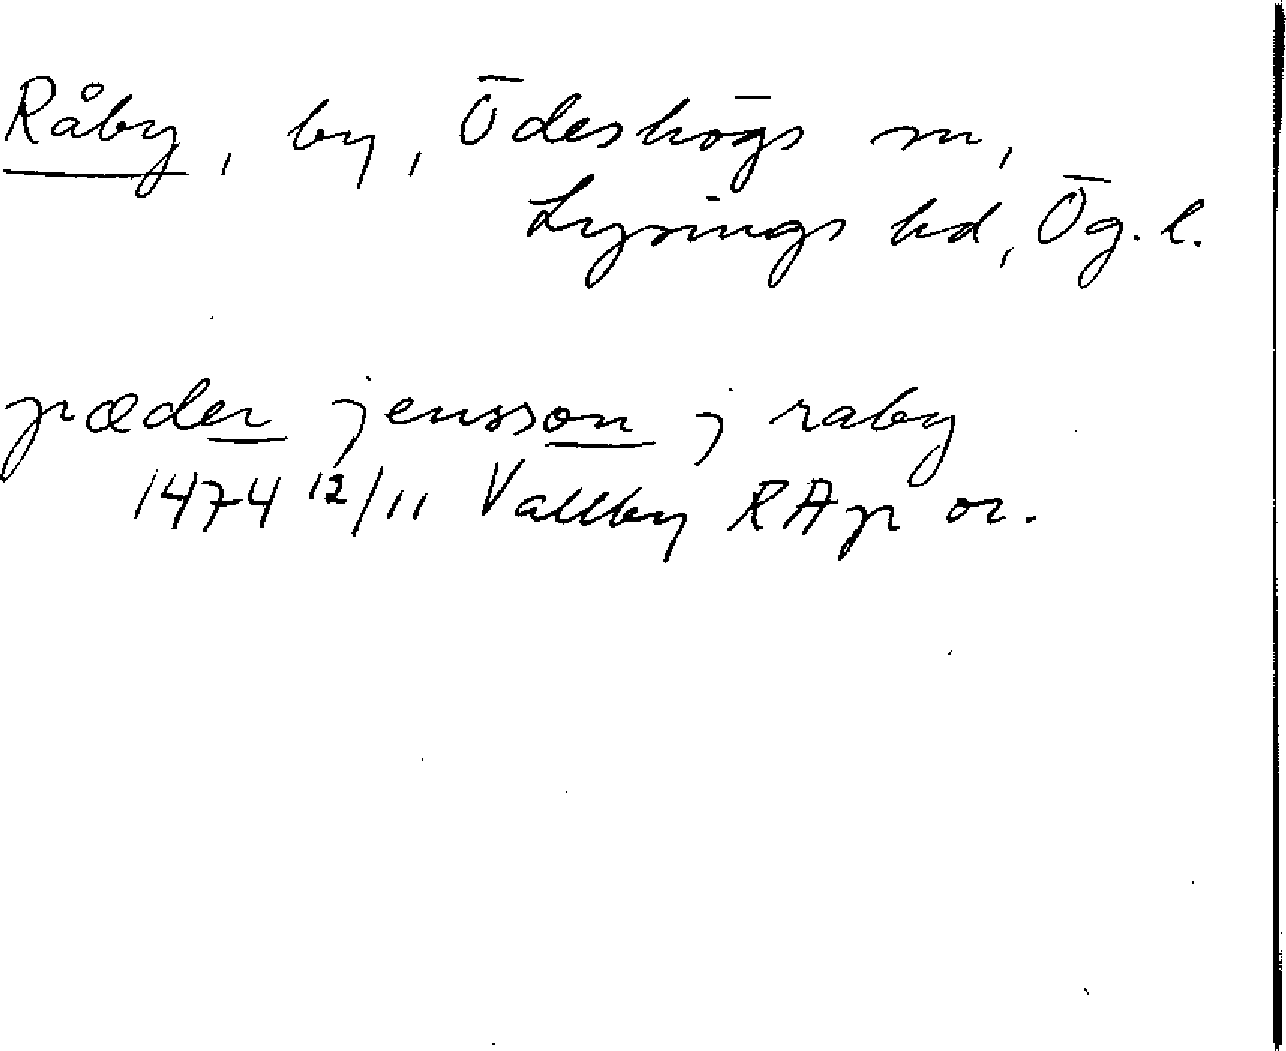 Råby, by, Ödeshögs sn,
Lysings hd, Ög. l.
pæder jensson j raby
1474 12/11 Vallby RAp or.